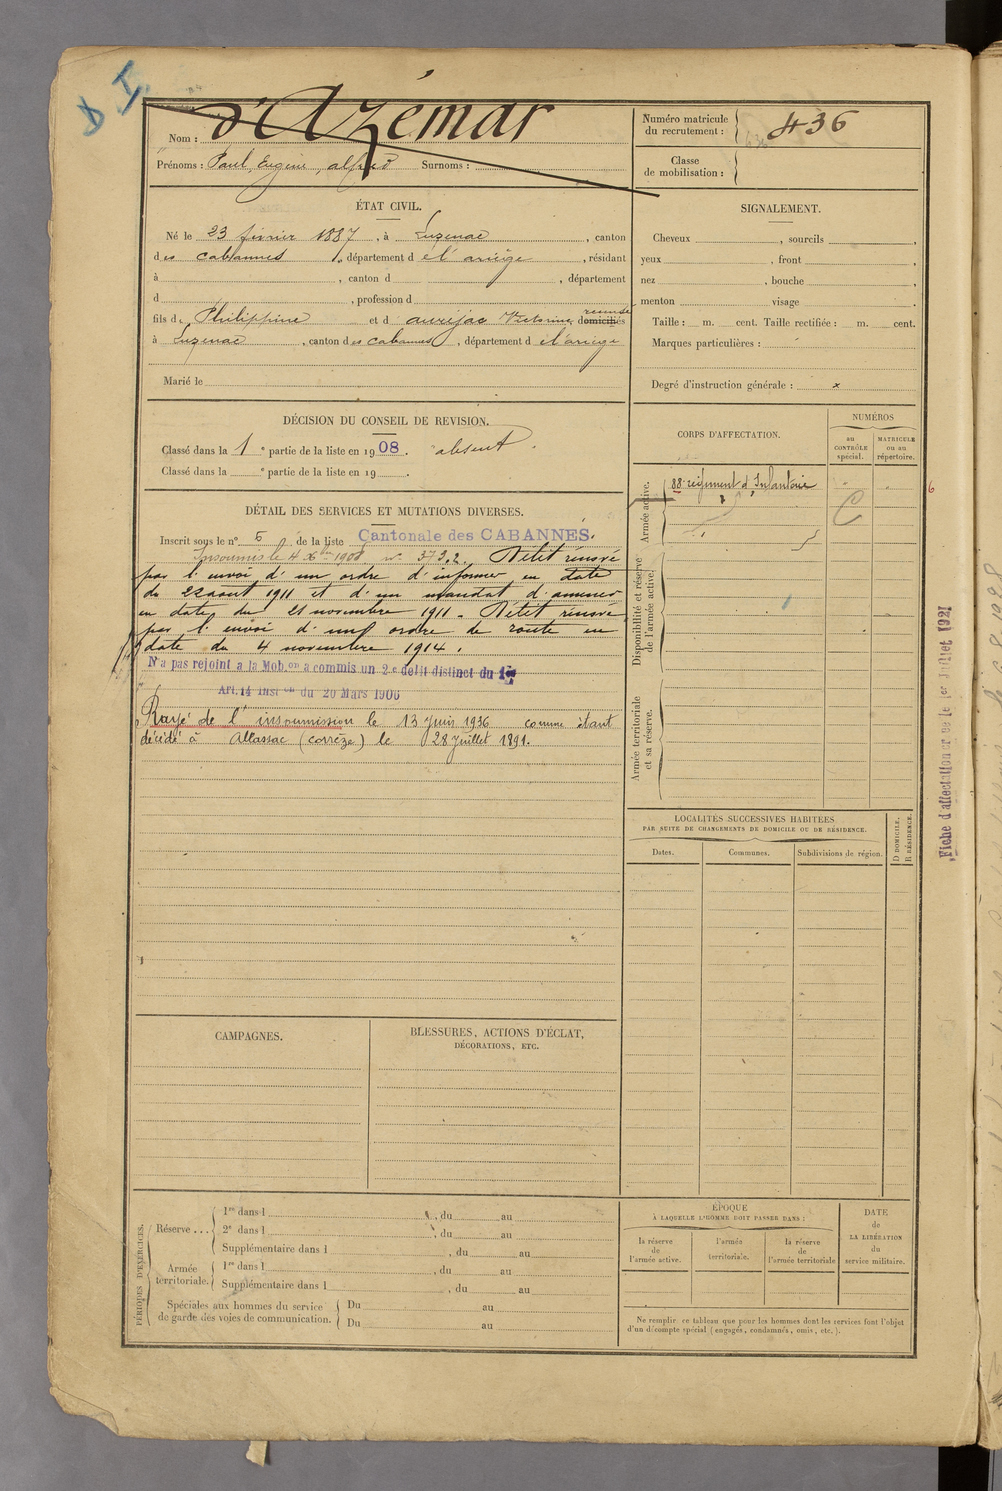 D I
d'Azémar
Nom :
Prénoms : Paul, Eugène, alfred Surnoms :
Numéro matricule du recrutement : 436
Classe de mobilisation :
ÉTAT CIVIL.
Né le 23 février 1887, à Luzenac, canton
des cabannes, département de l'ariège, résidant
à , canton d , département
d , profession d
fils de Philippine et d aurijac Victorine domiciliés
à Luzenac, canton des cabannes, département de l'ariège
Marié le
SIGNALEMENT.
Cheveux , sourcils ,
yeux , front ,
nez , bouche ,
menton visage
Taille : m. cent. Taille rectifiée : m. cent.
Marques particulières :
Degré d'instruction générale : x
DÉCISION DU CONSEIL DE REVISION.
Classé dans la 1e partie de la liste en 1908. absent.
Classé dans la e partie de la liste en 19 .
DÉTAIL DES SERVICES ET MUTATIONS DIVERSES.
Inscrit sous le n° 6 de la liste Cantonale des CABANNES.
Insoumis le 4 Xbre 1908 n° 373.2. Délit rénové
par l'envoi d'un ordre d'informer en date
du 22 août 1911 et d'un mandat d'amener
en date du 21 novembre 1911. Délit rénové
par l'envoi d'un ordre de route en
date du 4 novembre 1914.
N'a pas rejoint a la Mob.on a commis un 2e délit distinct du 1er
Art. 14 Inston du 20 Mars 1906
Rayé de l'insoumission le 13 Juin 1936 comme étant
décédé à Allassac (corrèze) le 28 juillet 1891.
CORPS D'AFFECTATION.
NUMÉROS
au CONTRÔLE spécial.
MATRICULE ou au répertoire.
Armée active.
88e régiment d'Infanterie
Disponibilité et réserve de l'armée active.
Armée territoriale et sa réserve.
6
Fiche d'affectation créée le 1er Juillet 1921
LOCALITÉS SUCCESSIVES HABITÉES
PAR SUITE DE CHANGEMENTS DE DOMICILE OU DE RÉSIDENCE.
Dates.
Communes.
Subdivisions de région.
D DOMICILE.
R RÉSIDENCE.
CAMPAGNES.
BLESSURES, ACTIONS D'ÉCLAT,
DÉCORATIONS, ETC.
PÉRIODES D'EXERCICES.
Réserve...
1re dans l , du au
2e dans l , du au
Supplémentaire dans l , du au
Armée territoriale.
1re dans l , du au
Supplémentaire dans l , du au
Spéciales aux hommes du service
de garde des voies de communication.
Du au
Du au
ÉPOQUE
À LAQUELLE L'HOMME DOIT PASSER DANS :
la réserve de l'armée active.
l'armée territoriale.
la réserve de l'armée territoriale
DATE
de
LA LIBÉRATION
du
service militaire.
Ne remplir ce tableau que pour les hommes dont les services font l'objet
d'un décompte spécial (engagés, condamnés, omis, etc.).